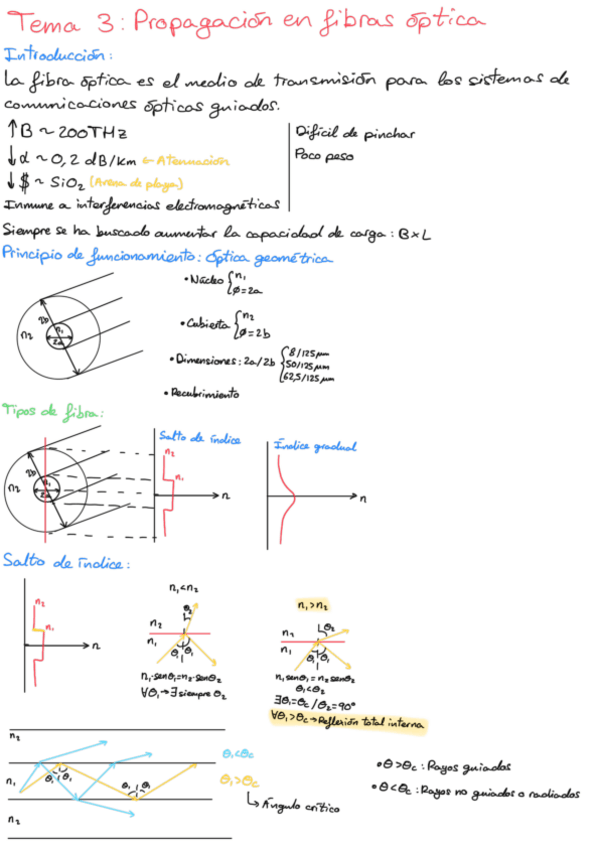 Tema 3: Propagación en fibras óptica
Introducción:
La fibra óptica es el medio de transmisión para los sistemas de
comunicaciones ópticas guiados.
↑B ~ 200THz
↓α ~ 0,2 dB/Km ← Atenuación
↓$ ~ SiO2 (Arena de playa)
Inmune a interferencias electromagnéticas
Difícil de pinchar
Poco peso
Siempre se ha buscado aumentar la capacidad de carga: B×L
Principio de funcionamiento: óptica geométrica
n2
2b
n1
2a
• Núcleo { n1
∅=2a
• Cubierta { n2
∅=2b
• Dimensiones: 2a/2b { 8/125 μm
50/125 μm
62,5/125 μm
• Recubrimiento
Tipos de fibra:
n2
2b
n1
2a
Salto de índice
n2
n1
n
Índice gradual
n
Salto de índice:
n2
n1
n
n1<n2
θ2
n2
n1
θ1 θ1
n1·senθ1=n2·senθ2
∀θ1→∃ siempre θ2
n1>n2
θ2
n2
n1
θ1 θ1
n1 senθ1 = n2 senθ2
θ1<θ2
∃θ1=θc / θ2=90°
∀θ1>θc→Reflexión total interna
n2
n1
n2
θ1 θ1
θ1 θ1
θ1<θc
θ1>θc
↳ Ángulo crítico
• θ>θc: Rayos guiados
• θ<θc: Rayos no guiados o radiados